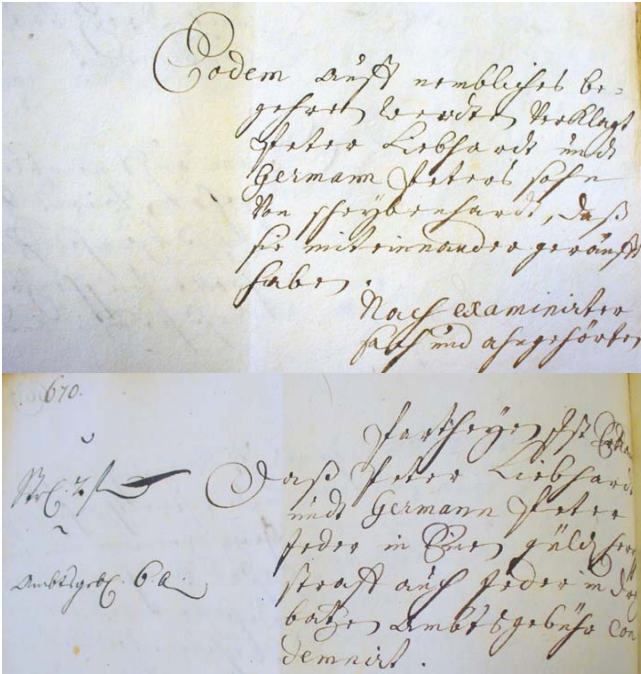 Eodem auff nembliches be-
gehren werdten Verklagt
Peter Liebhardt undt
Germann Peters sohn
Von Scheybenhardt, daß
sie miteinnander geräufft
haben.
Nach examinirter
sach und ahngehörten
670.
Partheyen ist
Daß Peter Liebhardt
undt Germann Peter
Jeder in Einen güld
Strf. 2 fl
straff auch Jeder in
Ambtsgeb. 6 b.
batzen Ambtsgebühr con
demnirt.